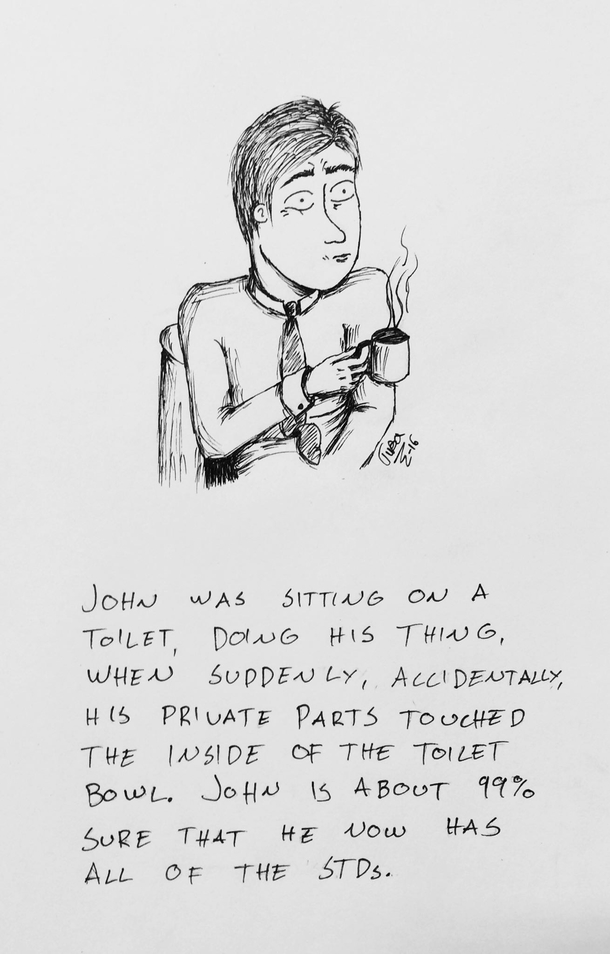 JOHN WAS SITTING ON A
TOILET, DOING HIS THING,
WHEN SUDDENLY, ACCIDENTALLY,
HIS PRIVATE PARTS TOUCHED
THE INSIDE OF THE TOILET
BOWL. JOHN IS ABOUT 99%
SURE THAT HE NOW HAS
ALL OF THE STDs.